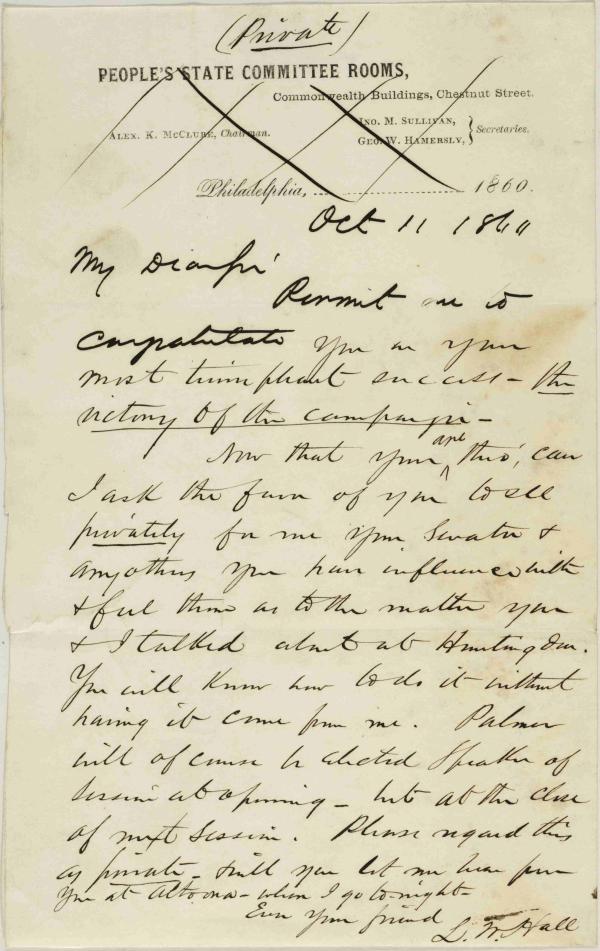 (Private)
PEOPLE'S STATE COMMITTEE ROOMS,
Commonwealth Buildings, Chestnut Street.
ALEX. K. McCLURE, Chairman.
JNO. M. SULLIVAN,
GEO. W. HAMERSLY,
Secretaries.
Philadelphia, 1860.
Oct 11 1860
My Dear Sir
Permit me to
congratulate you on your
most triumphant success - the
victory of the campaign -
Now that you are thro', can
I ask the favor of you to see
privately for me your Senator &
any others you have influence with
& feel them as to the matter you
& I talked about at Huntingdon.
You will know how to do it without
having it come from me. Palmer
will of course be elected Speaker of
Session at opening - but at the close
of next Session. Please regard this
as private - & will you let me hear from
you at Altoona - where I go to-night -
Ever your friend
L. W. Hall